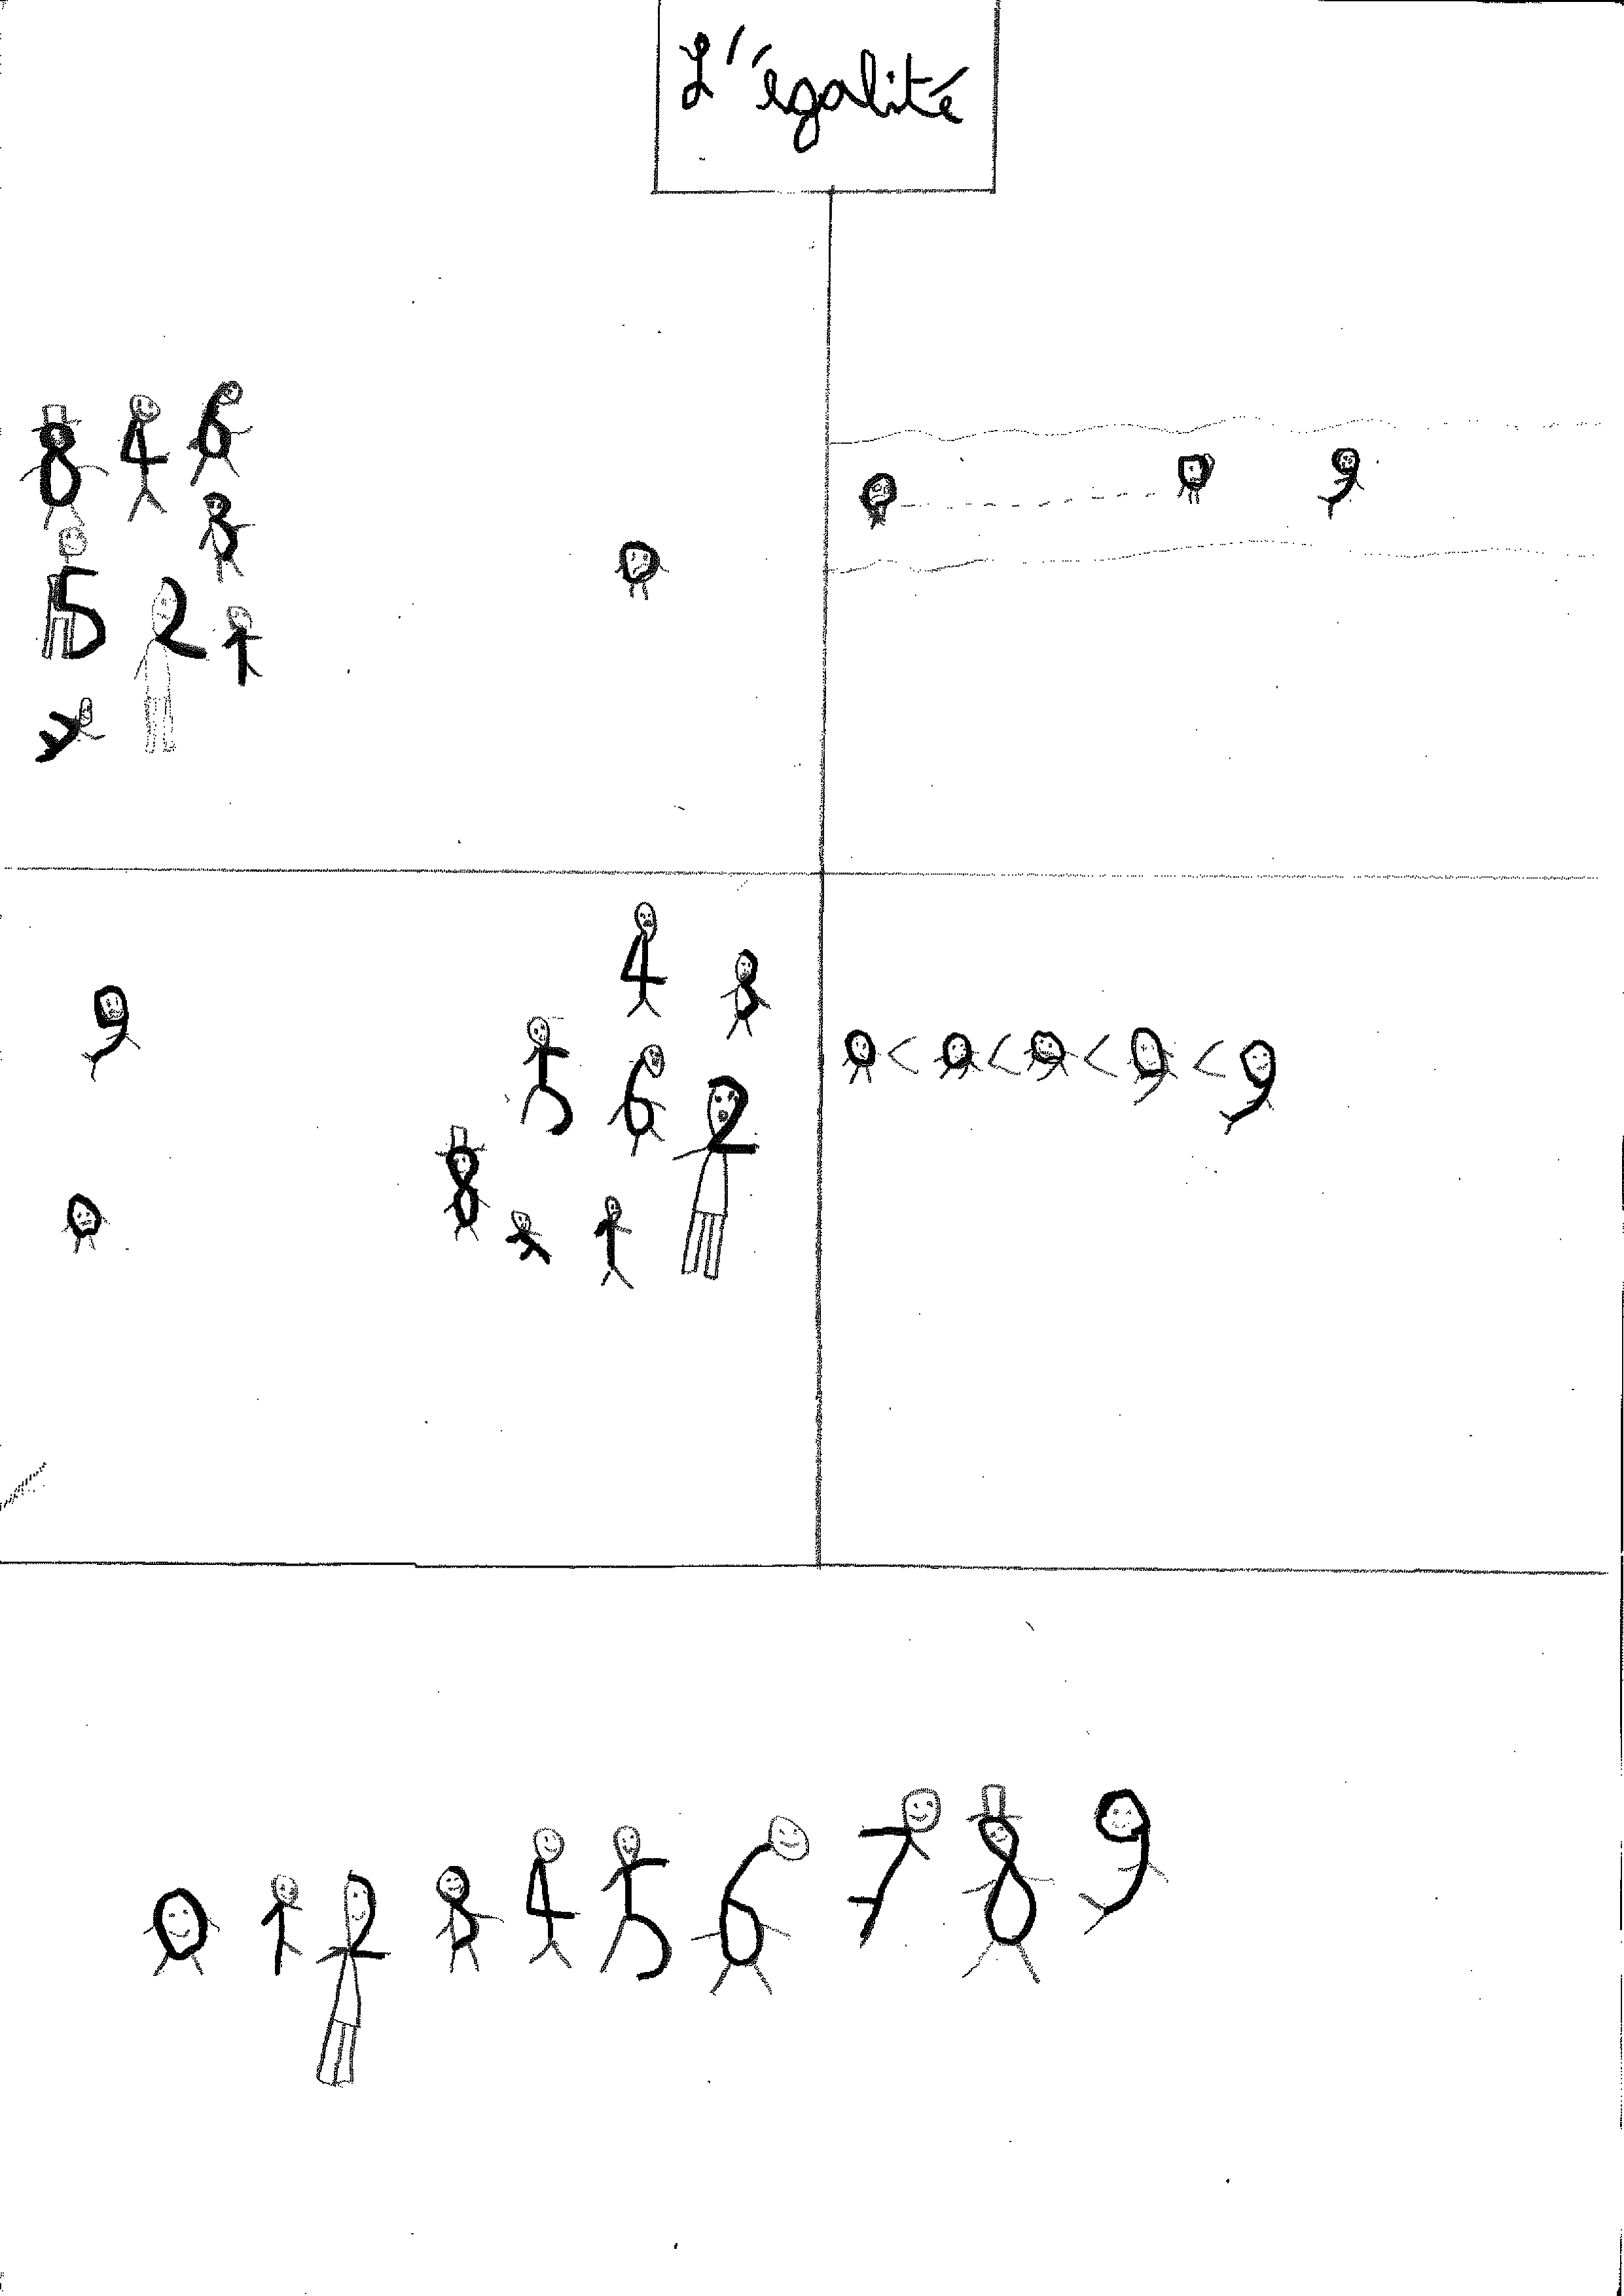 L'égalité
8 4 6
3
5 2 1
7
0
0 0 9
9
0
4
3
5 6 2
8 7 1
0 < 0 < 0 < 9 < 9
0 1 2 3 4 5 6 7 8 9